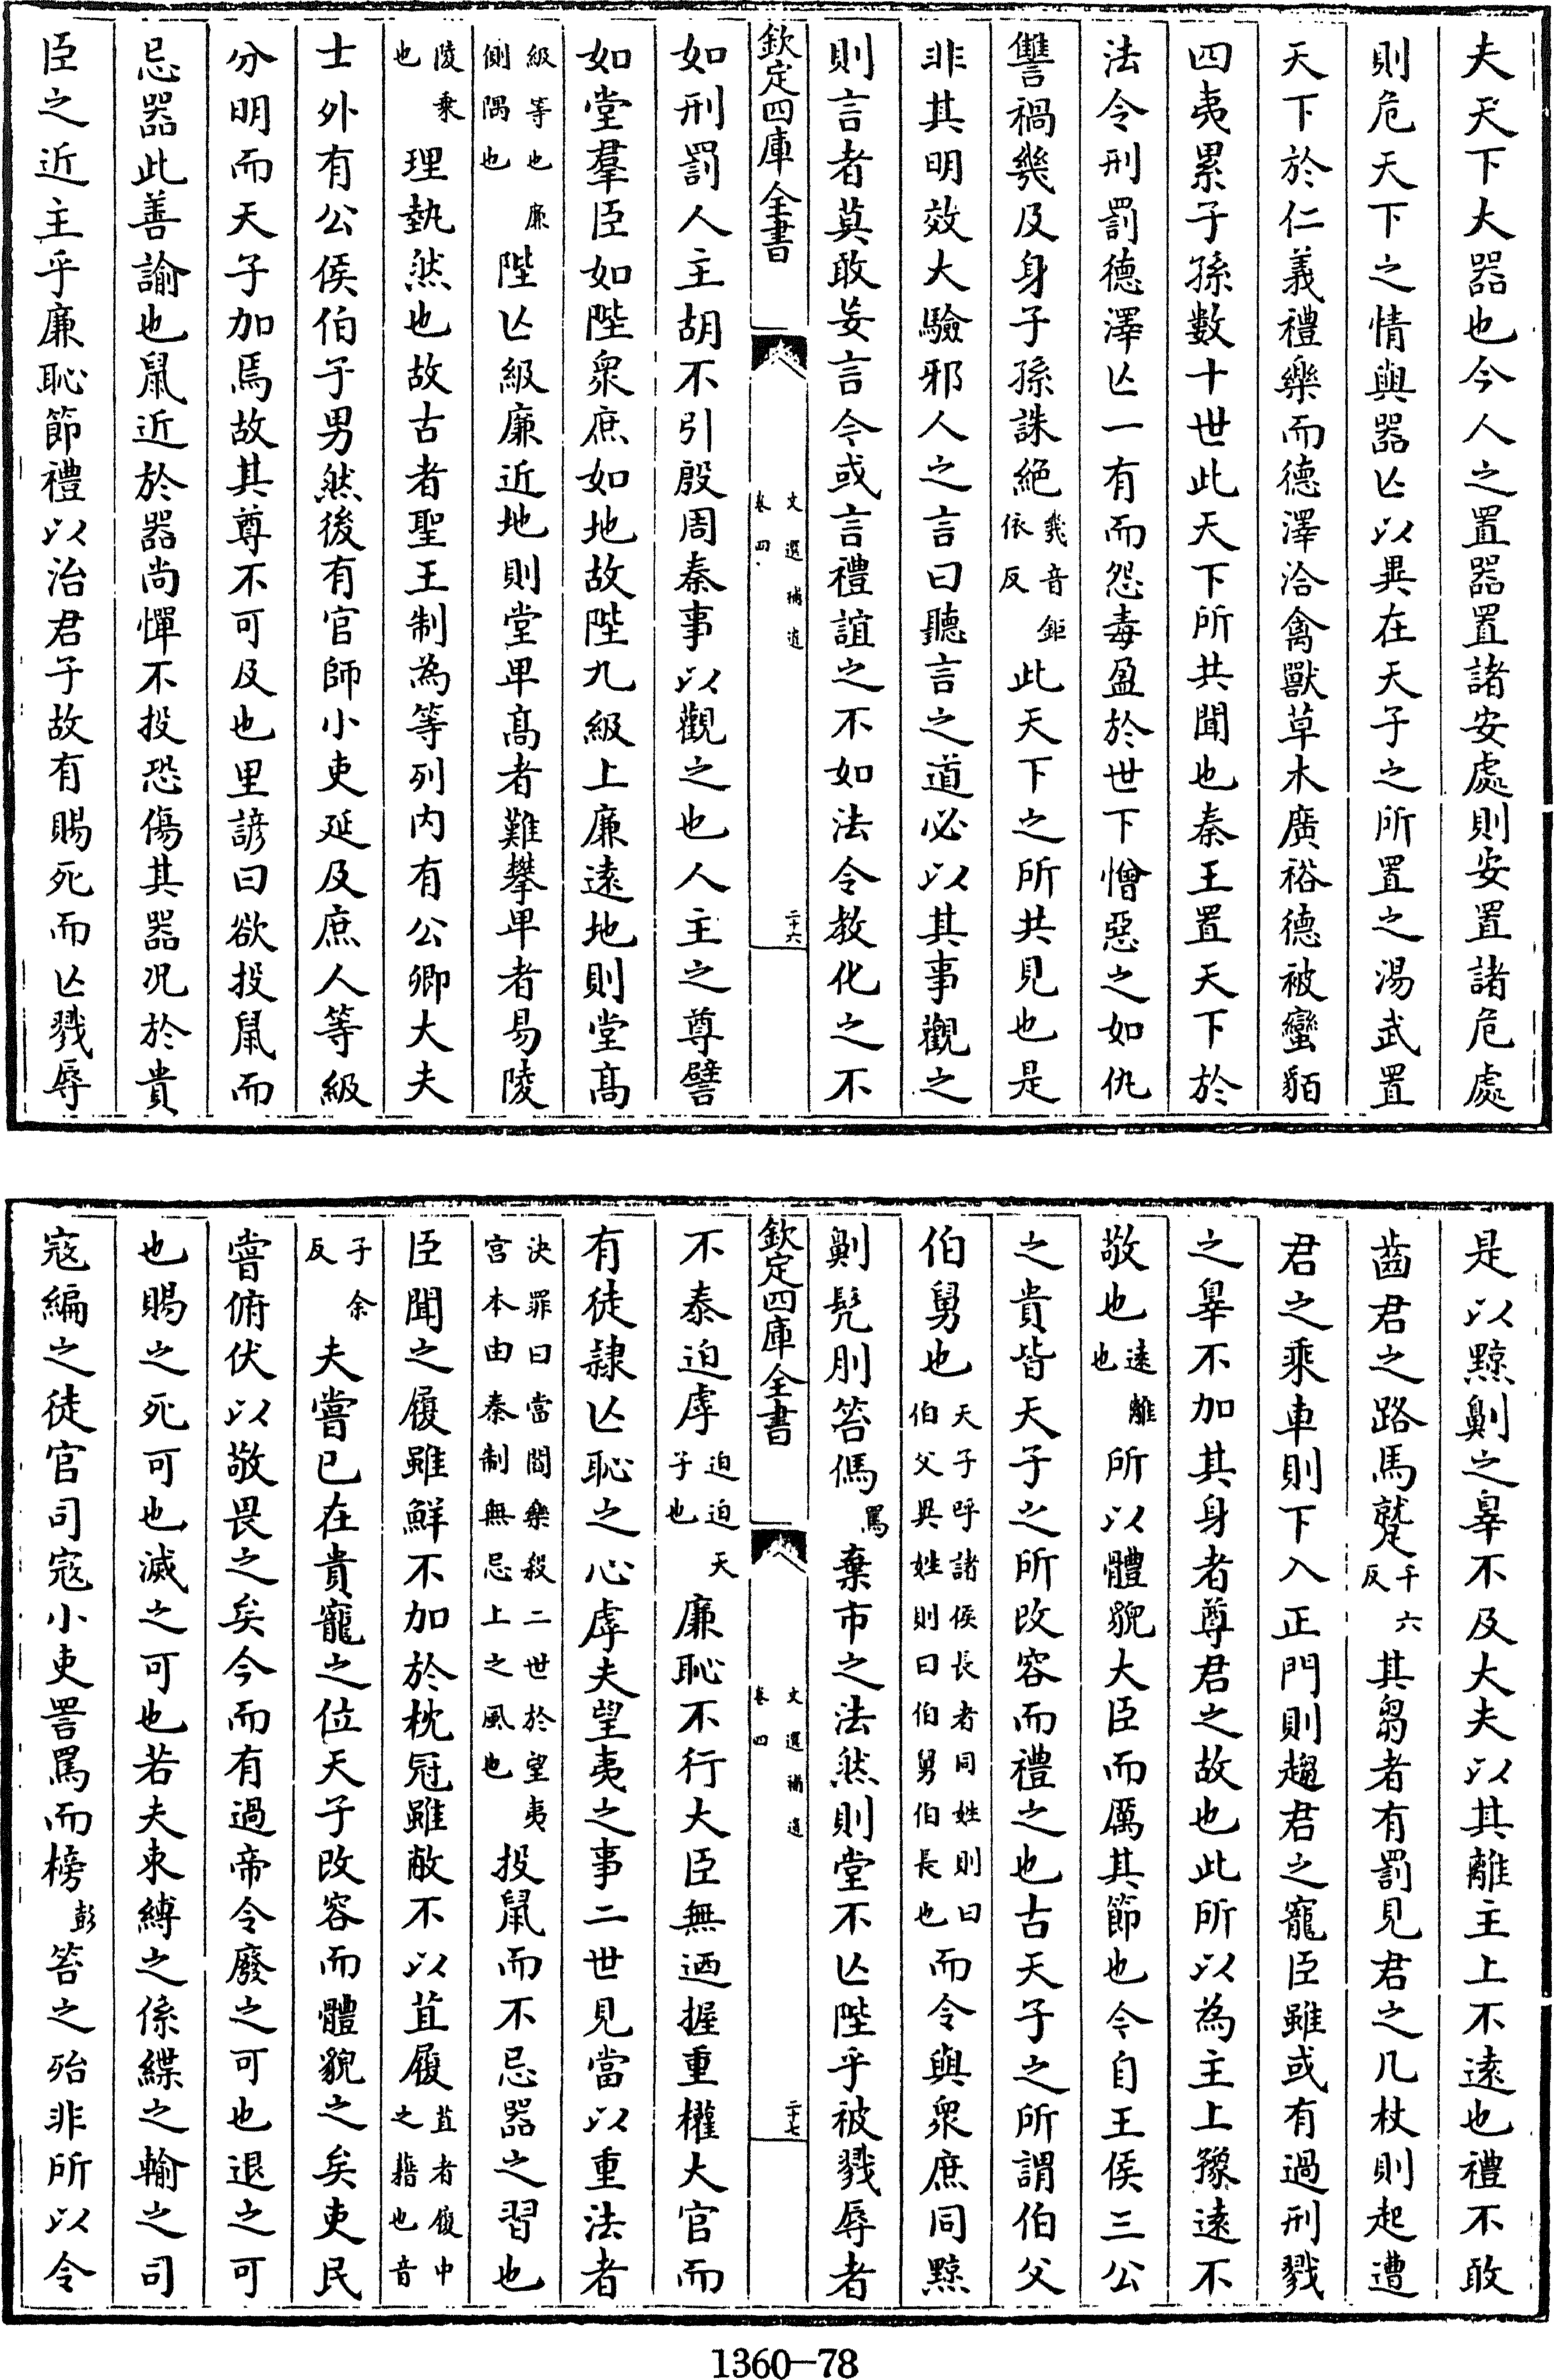 夫天下大器也今人之置器置諸安處則安置諸危處
則危天下之情與器亾以異在天子之所置之湯武置
天下於仁義禮樂而德澤洽禽獸草木廣裕德被蠻貊
四夷累子孫數十世此天下所共聞也秦王置天下於
法令刑罰德澤亾一有而怨毒盈於世下憎惡之如仇
讐禍㡬及身子孫誅絕㡬音鉅依反此天下之所共見也是
非其明效大驗邪人之言曰聽言之道必以其事觀之
則言者莫敢妄言今或言禮誼之不如法令教化之不
欽定四庫全書
文選補遺
卷四
二十六
如刑罰人主胡不引殷周秦事以觀之也人主之尊譬
如堂羣臣如陛衆庶如地故陛九級上廉遠地則堂髙
級等也廉側隅也陛亾級廉近地則堂卑髙者難攀卑者易陵
陵乗也理埶然也故古者聖王制為等列内有公卿大夫
士外有公侯伯子男然後有官師小吏延及庶人等級
分明而天子加焉故其尊不可及也里諺曰欲投鼠而
忌器此善諭也鼠近於器尚憚不投恐傷其器况於貴
臣之近主乎廉恥節禮以治君子故有賜死而亾戮辱
是以黥劓之辠不及大夫以其離主上不遠也禮不敢
齒君之路馬蹵千六反其芻者有罰見君之几杖則起遭
君之乘車則下入正門則趨君之寵臣雖或有過刑戮
之辠不加其身者尊君之故也此所以為主上豫遠不
敬也遠離也所以體貌大臣而厲其節也今自王侯三公
之貴皆天子之所改容而禮之也古天子之所謂伯父
伯舅也天子呼諸侯長者同姓則曰伯父異姓則曰伯舅伯長也而令與衆庶同黥
劓髠刖笞傌罵棄市之法然則堂不亾陛乎被戮辱者
欽定四庫全書
文選補遺
卷四
二十七
不泰迫虖迫迫天子也廉恥不行大臣無迺握重權大官而
有徒隷亾恥之心虖夫望夷之事二世見當以重法者
決罪曰當閻樂殺二世於望夷宫本由秦制無忌上之風也投鼠而不忌器之習也
臣聞之履雖鮮不加於枕冠雖敝不以苴履苴者履中之藉也音
子余反夫嘗已在貴寵之位天子改容而體貌之矣吏民
嘗俯伏以敬畏之矣今而有過帝令廢之可也退之可
也賜之死可也滅之可也若夫束縛之係緤之輸之司
寇編之徒官司寇小吏詈罵而榜彭笞之殆非所以令
1360—78